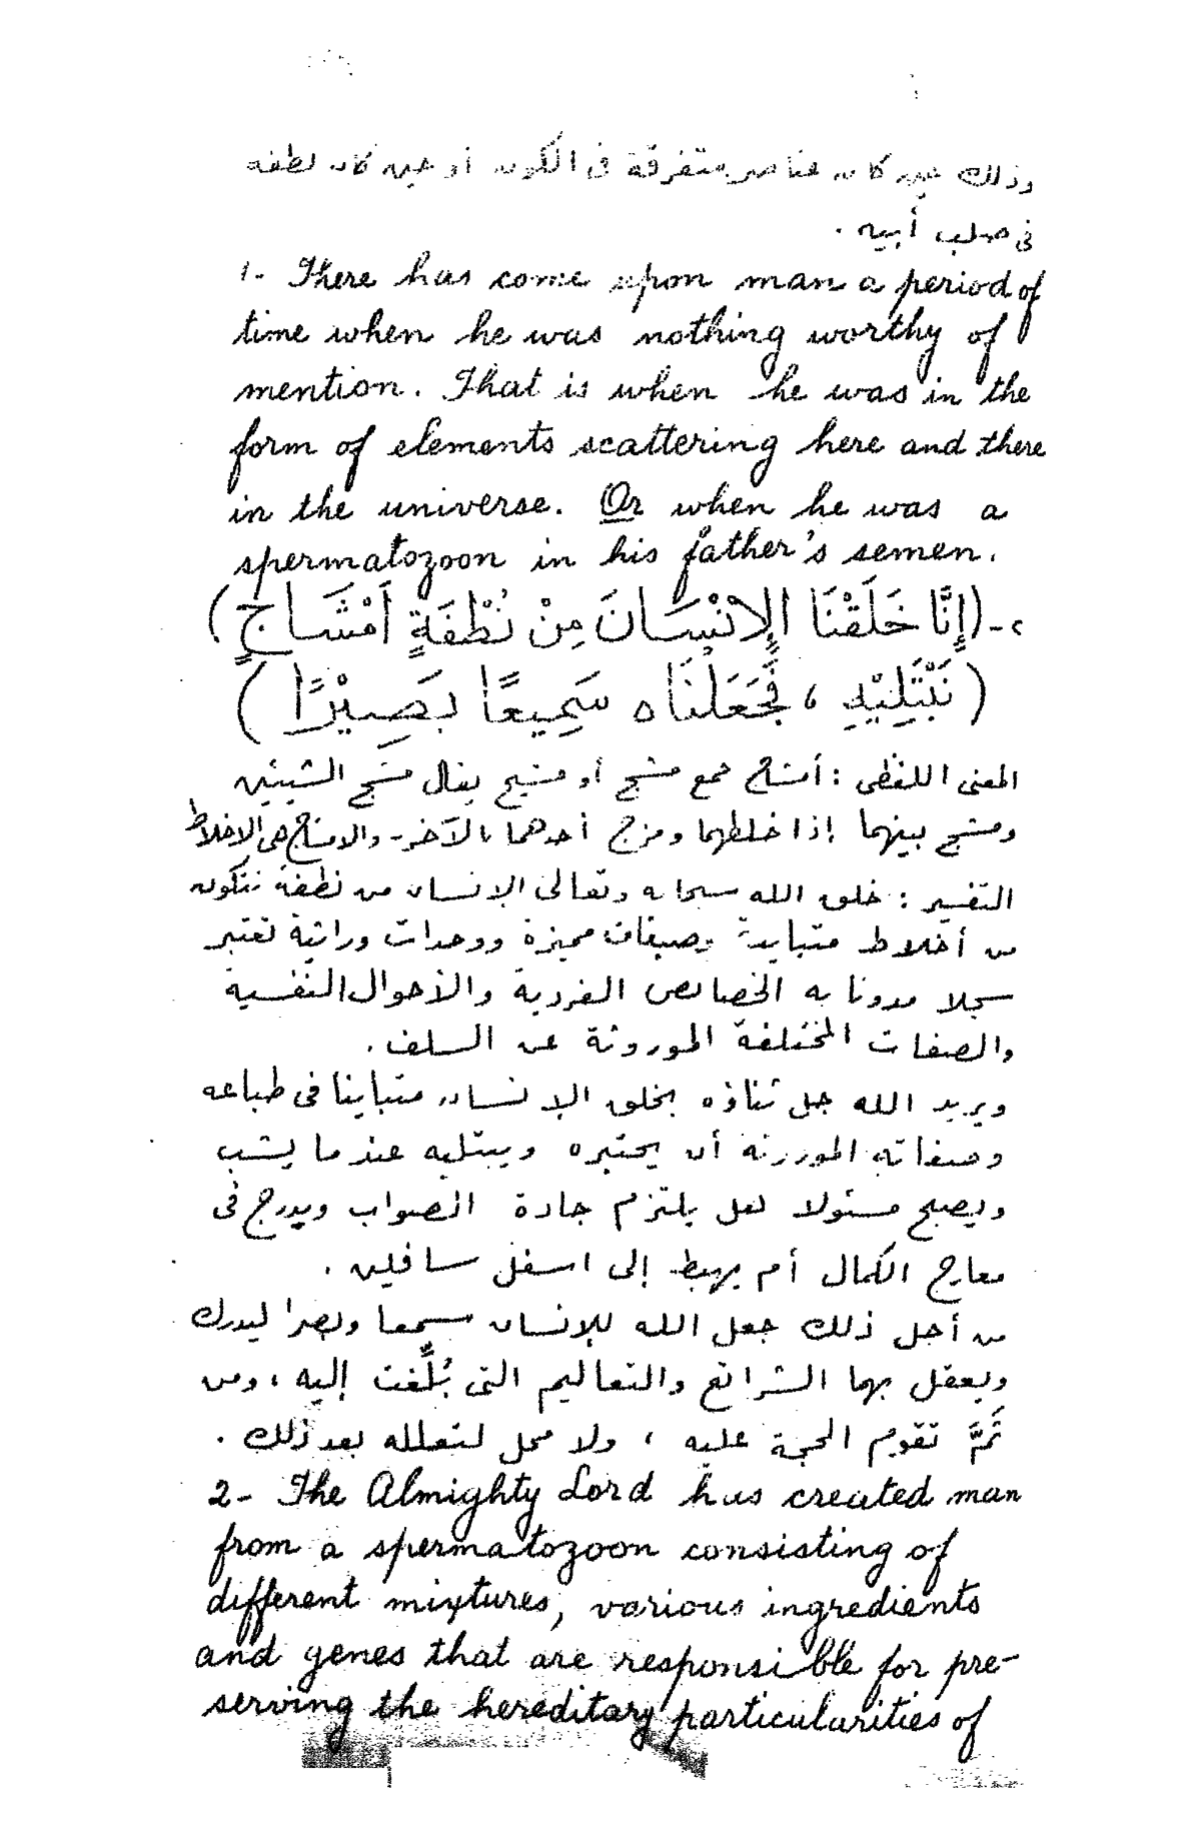 وذلك حين كان عناصر متفرقة فى الكون أو حين كان نطفة
فى صلب أبيه .
1- There has come upon man a period of
time when he was nothing worthy of
mention. That is when he was in the
form of elements scattering here and there
in the universe. Or when he was a
spermatozoon in his father's semen.
٢- (إِنَّا خَلَقْنَا الإِنْسَانَ مِنْ نُطْفَةٍ أَمْشَاجٍ)
(نَبْتَلِيْهِ ، فَجَعَلْنَاه سَمِيعًا بَصِيْرًا)
المعنى اللفظى : أمشاج جمع مشج أو مشيج يقال مشج الشيئين
ومشج بينهما إذا خلطهما ومزج أحدهما بالآخر - والامشاج هى الاخلاط
التفسير : خلق الله سبحانه وتعالى الإنسان من نطفة تتكون
من أخلاط متباينة وصبغات مميزة ووحدات وراثية تعتبر
سجلا مدونا به الخصائص الفردية والأحوال النفسية
والصفات المختلفة الموروثة عن السلف .
ويريد الله جل ثناؤه بخلق الإنسان متباينا فى طباعه
وصفاته الموروثة أن يختبره ويبتليه عندما يشب
ويصبح مسئولا لعل يلتزم جادة الصواب ويدرج فى
معارج الكمال أم يهبط إلى اسفل سافلين .
من أجل ذلك جعل الله للإنسان سمعا وبصرا ليدرك
ويعقل بهما الشرائع والتعاليم التى بُلِّغت إليه ، ومن
ثَمَّ تقوم الحجة عليه ، ولا محل لتعلله بعد ذلك .
2- The Almighty Lord has created man
from a spermatozoon consisting of
different mixtures, various ingredients
and genes that are responsible for pre-
serving the hereditary particularities of